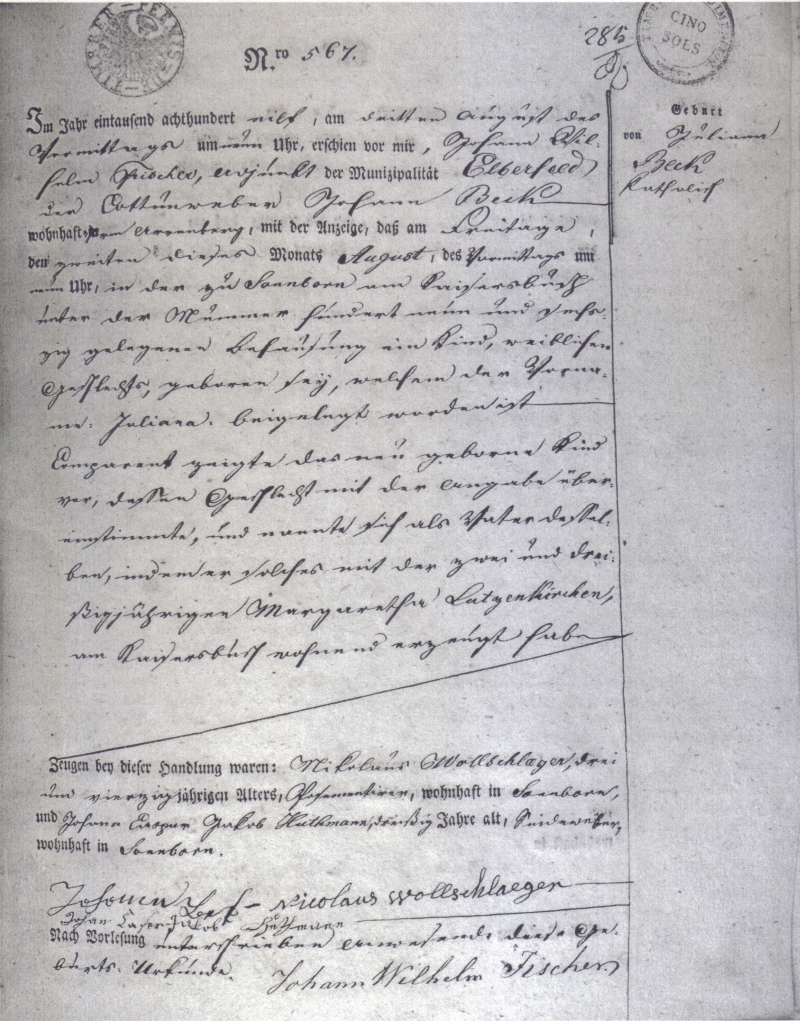 Nro 567.
285
CINQ
SOLS
Geburt
von Juliana
Beck
Katholisch
Im Jahr eintausend achthundert eilf, am dritten August des
Vormittags um neun Uhr, erschien vor mir, Johann Wil-
helm Fischer, Adjunkt der Munizipalität Elberfeld
der Cottunweber Johann Beck
wohnhaft am Arrenberg, mit der Anzeige, daß am Freitage,
den zweiten dieses Monats August, des Vormittags um
neun Uhr, in der zu Sonnborn am Kaisersbusch
unter der Nummer hundert neun und sechs-
zig gelegenen Behausung ein Kind, weiblichen
Geschlechts, geboren sey, welchem der Vorna-
me: Juliana. beigelegt worden ist
Comparent zeigte das neu geborne Kind
vor, dessen Geschlecht mit der Angabe über-
einstimmte, und nannte sich als Vater dessel-
ben, indem er solches mit der zwei und drei-
ßigjährigen Margaretha Lutzenkirchen,
am Kaisersbusch wohnend erzeugt habe
Zeugen bey dieser Handlung waren: Nikolaus Wollschlaeger, drei
und vierzig jährigen Alters, Posementirer, wohnhaft in Sonnborn,
und Johann Caspar Jakob Huthmann, dreißig Jahre alt, Seideweber,
wohnhaft in Sonnborn.
Johann Beck Nicolaus Wollschlaeger
Johan Casper Jakob Huthmann
Nach Vorlesung unterschrieben Anwesende diese Ge-
burts-Urkunde. Johann Wilhelm Fischer